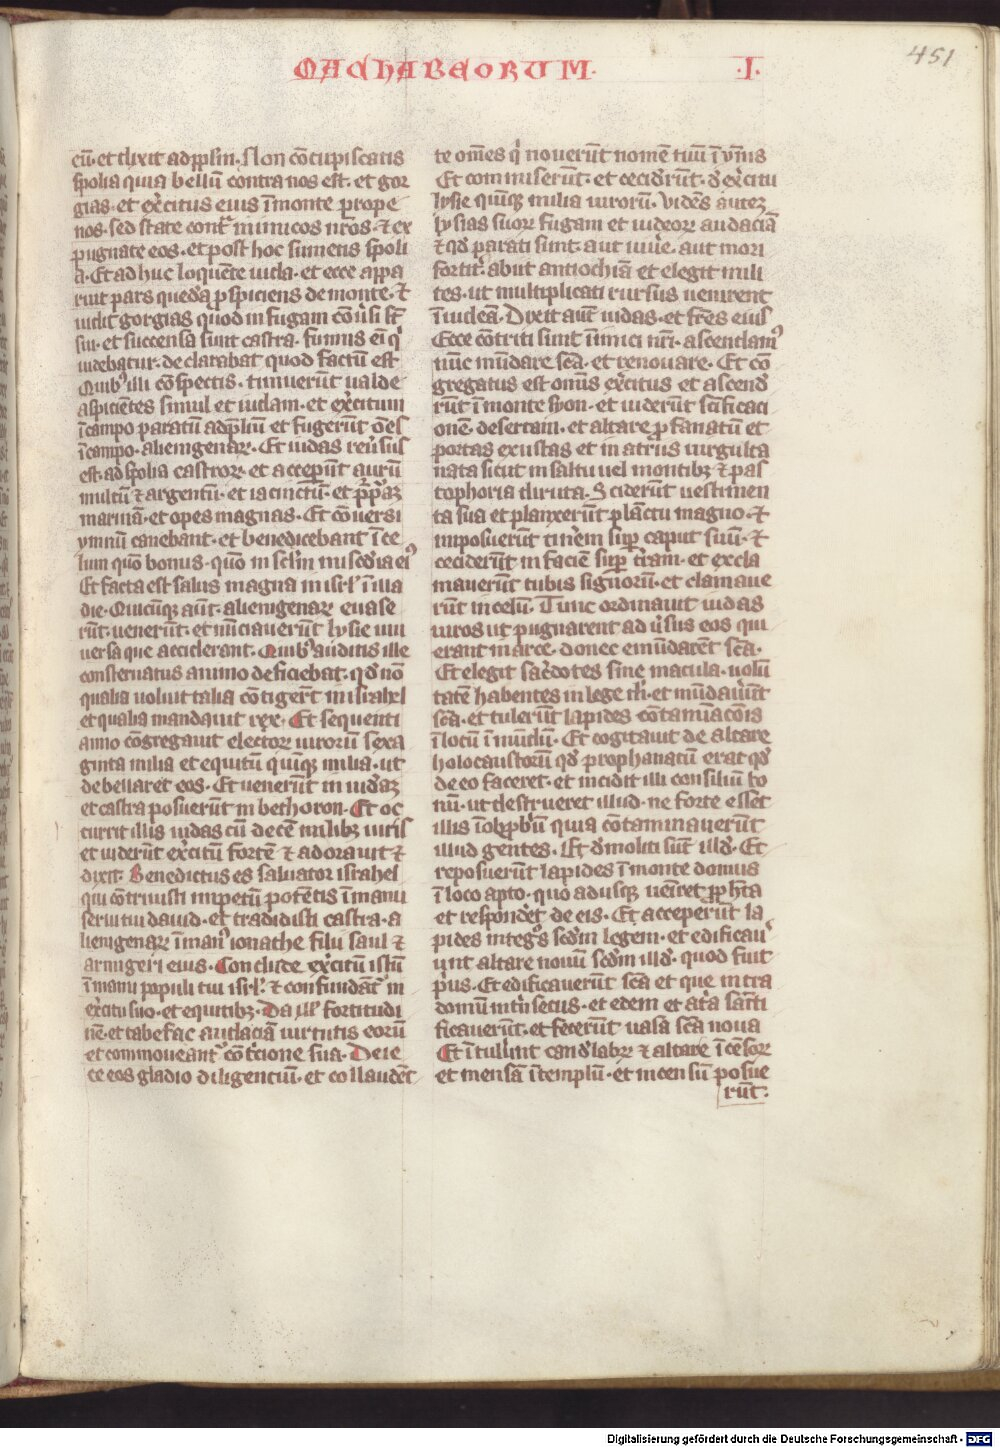 MACHABEORUM · I ·
451
cū· et dixit ad pplm· Non cōcupiscatis
spolia quia bellū contra nos est· et gor
gias· et exercitus eius ī monte prope
nos· sed state cont̄ inimicos nr̄os· ⁊ ex
pugnate eos· et post hoc sumetis spoli
a· Et ad huc loquēte iuda· et ecce appa
ruit pars quedā pspiciens de monte· ⁊
uidit gorgias quod in fugam cōuersi st̄
sui· et succensa sunt castra· fumus eī q̇
uidebatur· declarabat quod factū est
Quibꝰ illi cōspectis· timuerūt ualde
aspiciētes simul et iudam· et exercitum
ī campo paratū ad plīū et fugerūt oēs
ī campo· alienigenarꝝ· Et iudas reuersus
est· ad spolia castrorꝝ· et acceperūt aurū
multū ⁊ argentū· et iacinctū· et prp̄aꝫ
marinā· et opes magnas· Et cōuersi
ymnū canebant· et benedicebant ī ce
lum quō bonus· quō in sclm̄ miscdia eiꝰ
Et facta est salus magna in isrl̄ ī illa
die· Quicūqꝫ aūt· alienigenarꝝ euase
rūt· uenerūt· et nūciauerūt lysie uni
uersa que acciderant· Quibꝰ auditis ille
consternatus animo deficiebat· qd̄ nō
qualia uoluit talia cōtigerūt in israhel
et qualia mandauit rex· Et sequenti
anno cōgregauit electorꝝ uirorū sexa
ginta milia et equitū quīqꝫ milia· ut
debellaret eos· Et uenerūt in iudeaꝫ
et castra posuerūt in bethoron· Et oc
currit illis iudas cū decē milibꝫ uiris
et uiderūt exercitū fortē ⁊ adorauit ⁊
dixit· Benedictus es saluator israhel
qui cōtriuisti impetū potētis ī manu
serui tui dauid· et tradidisti castra· a
lienigenarꝝ ī manꝰ ionathe filii saul ⁊
armigeri eius· Conclude exercitū istū
ī manu populi tui isrl̄· ⁊ confundant̄ in
exercitu suo· et equitibꝫ· Da ill̄ fortitudi
nē· et tabefac audaciā uirtutis eorū
et commoueant̄ cōtricione sua· Deie
ce eos gladio diligenciū· et collaudēt
te om̄es q̇ nouerūt nomē tuū ī ymnis
Et commiserūt· et ceciderūt· de exercitu
lysie quīqꝫ milia uirorū· Videns auteꝫ
lysias suorꝝ fugam et iudeorꝝ audaciā
⁊ qd̄ parati sunt· aut uiuere· aut mori
fortiter· abiit antiochiā et elegit mili
tes· ut multiplicati rursus uenirent
ī iudeā· Dixit aut̄ iudas· et fr̄es eius
Ecce cōtriti sunt inimici nr̄i· ascendamꝰ
nūc mūdare sc̄a· et renouare· Et cō
gregatus est omīs exercitus et ascende
rūt ī monte syon· et uiderūt scīficaci
onē· desertam· et altare pfanatū et
portas exustas et in atriis uirgulta
nata sicut in saltu uel montibꝫ ⁊ pas
tophoria diruta· Sciderūt uestimen
ta sua et planxerūt plāctu magno· ⁊
imposuerūt cinerem sup̱ caput suū· ⁊
ceciderūt in faciē sup̱ terram· et excla
mauerūt tubis signorū· et clamaue
rūt in celū· Tunc ordinauit iudas
uiros ut pugnarent aduersus eos qui
erant in arce· donec emūdarēt sc̄a·
Et elegit sacerdotes sine macula· uolū
tatē habentes in lege di· et mūdauerūt
sc̄a· et tulerūt lapides cōtamīacōis
ī locū īmūdū· Et cogitauit de altare
holocaustorū qd̄ prophanatū erat qd̄
de eo faceret· et incidit illi consiliū bo
nū· ut destrueret illud· ne forte essēt
illis ī obprbriū quia cōtaminauerūt
illud gentes· Et demoliti sūt illd̄· Et
reposuerūt lapides ī monte domus
ī loco apto· quo adusqꝫ ueniret pp̱hēta
et responderet de eis· Et acceperūt la
pides integros scd̄m legem· et edificauꝰ
unt altare nouū scd̄m illd̄· quod fuit
prius· Et edificauerūt sc̄a et que intra
domū intrīsecus· et edem et atria sāctī
ficauerūt· et fecerūt uasa sc̄a noua
Et ītulerūt candelabrꝝ ⁊ altare īcēsorꝝ
et mensā ī templū· et incensū posue
rūt·
Digitalisierung gefördert durch die Deutsche Forschungsgemeinschaft - DFG